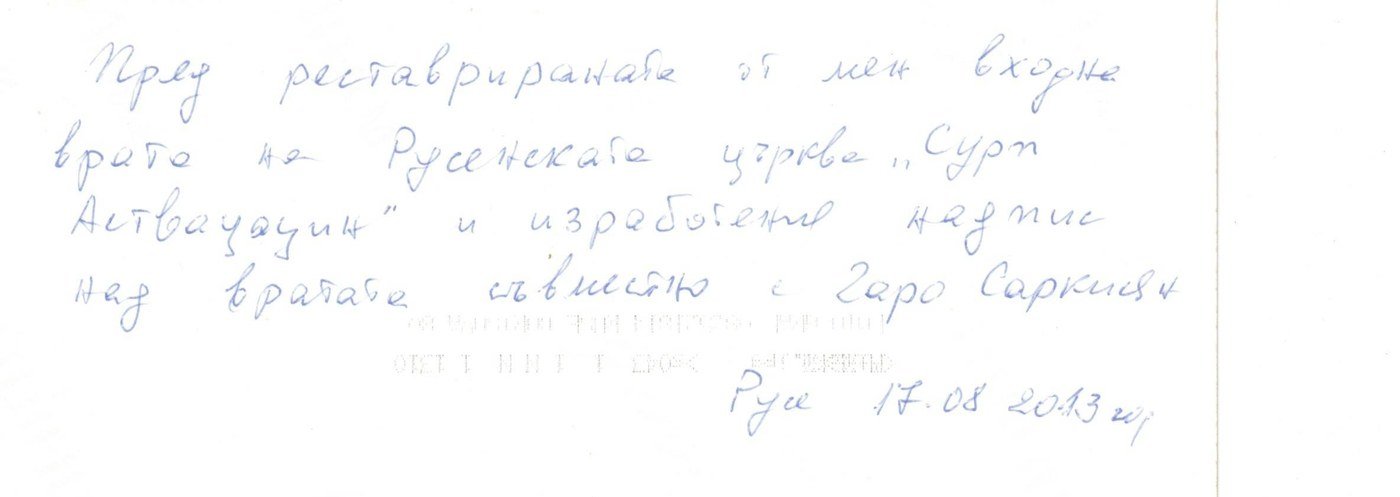 Пред реставрираната от мен входна
врата на Русенската църква „Сурп
Аствацацин" и изработения надпис
над вратата съвместно с Гаро Саркисян
Русе 17.08 2013 год